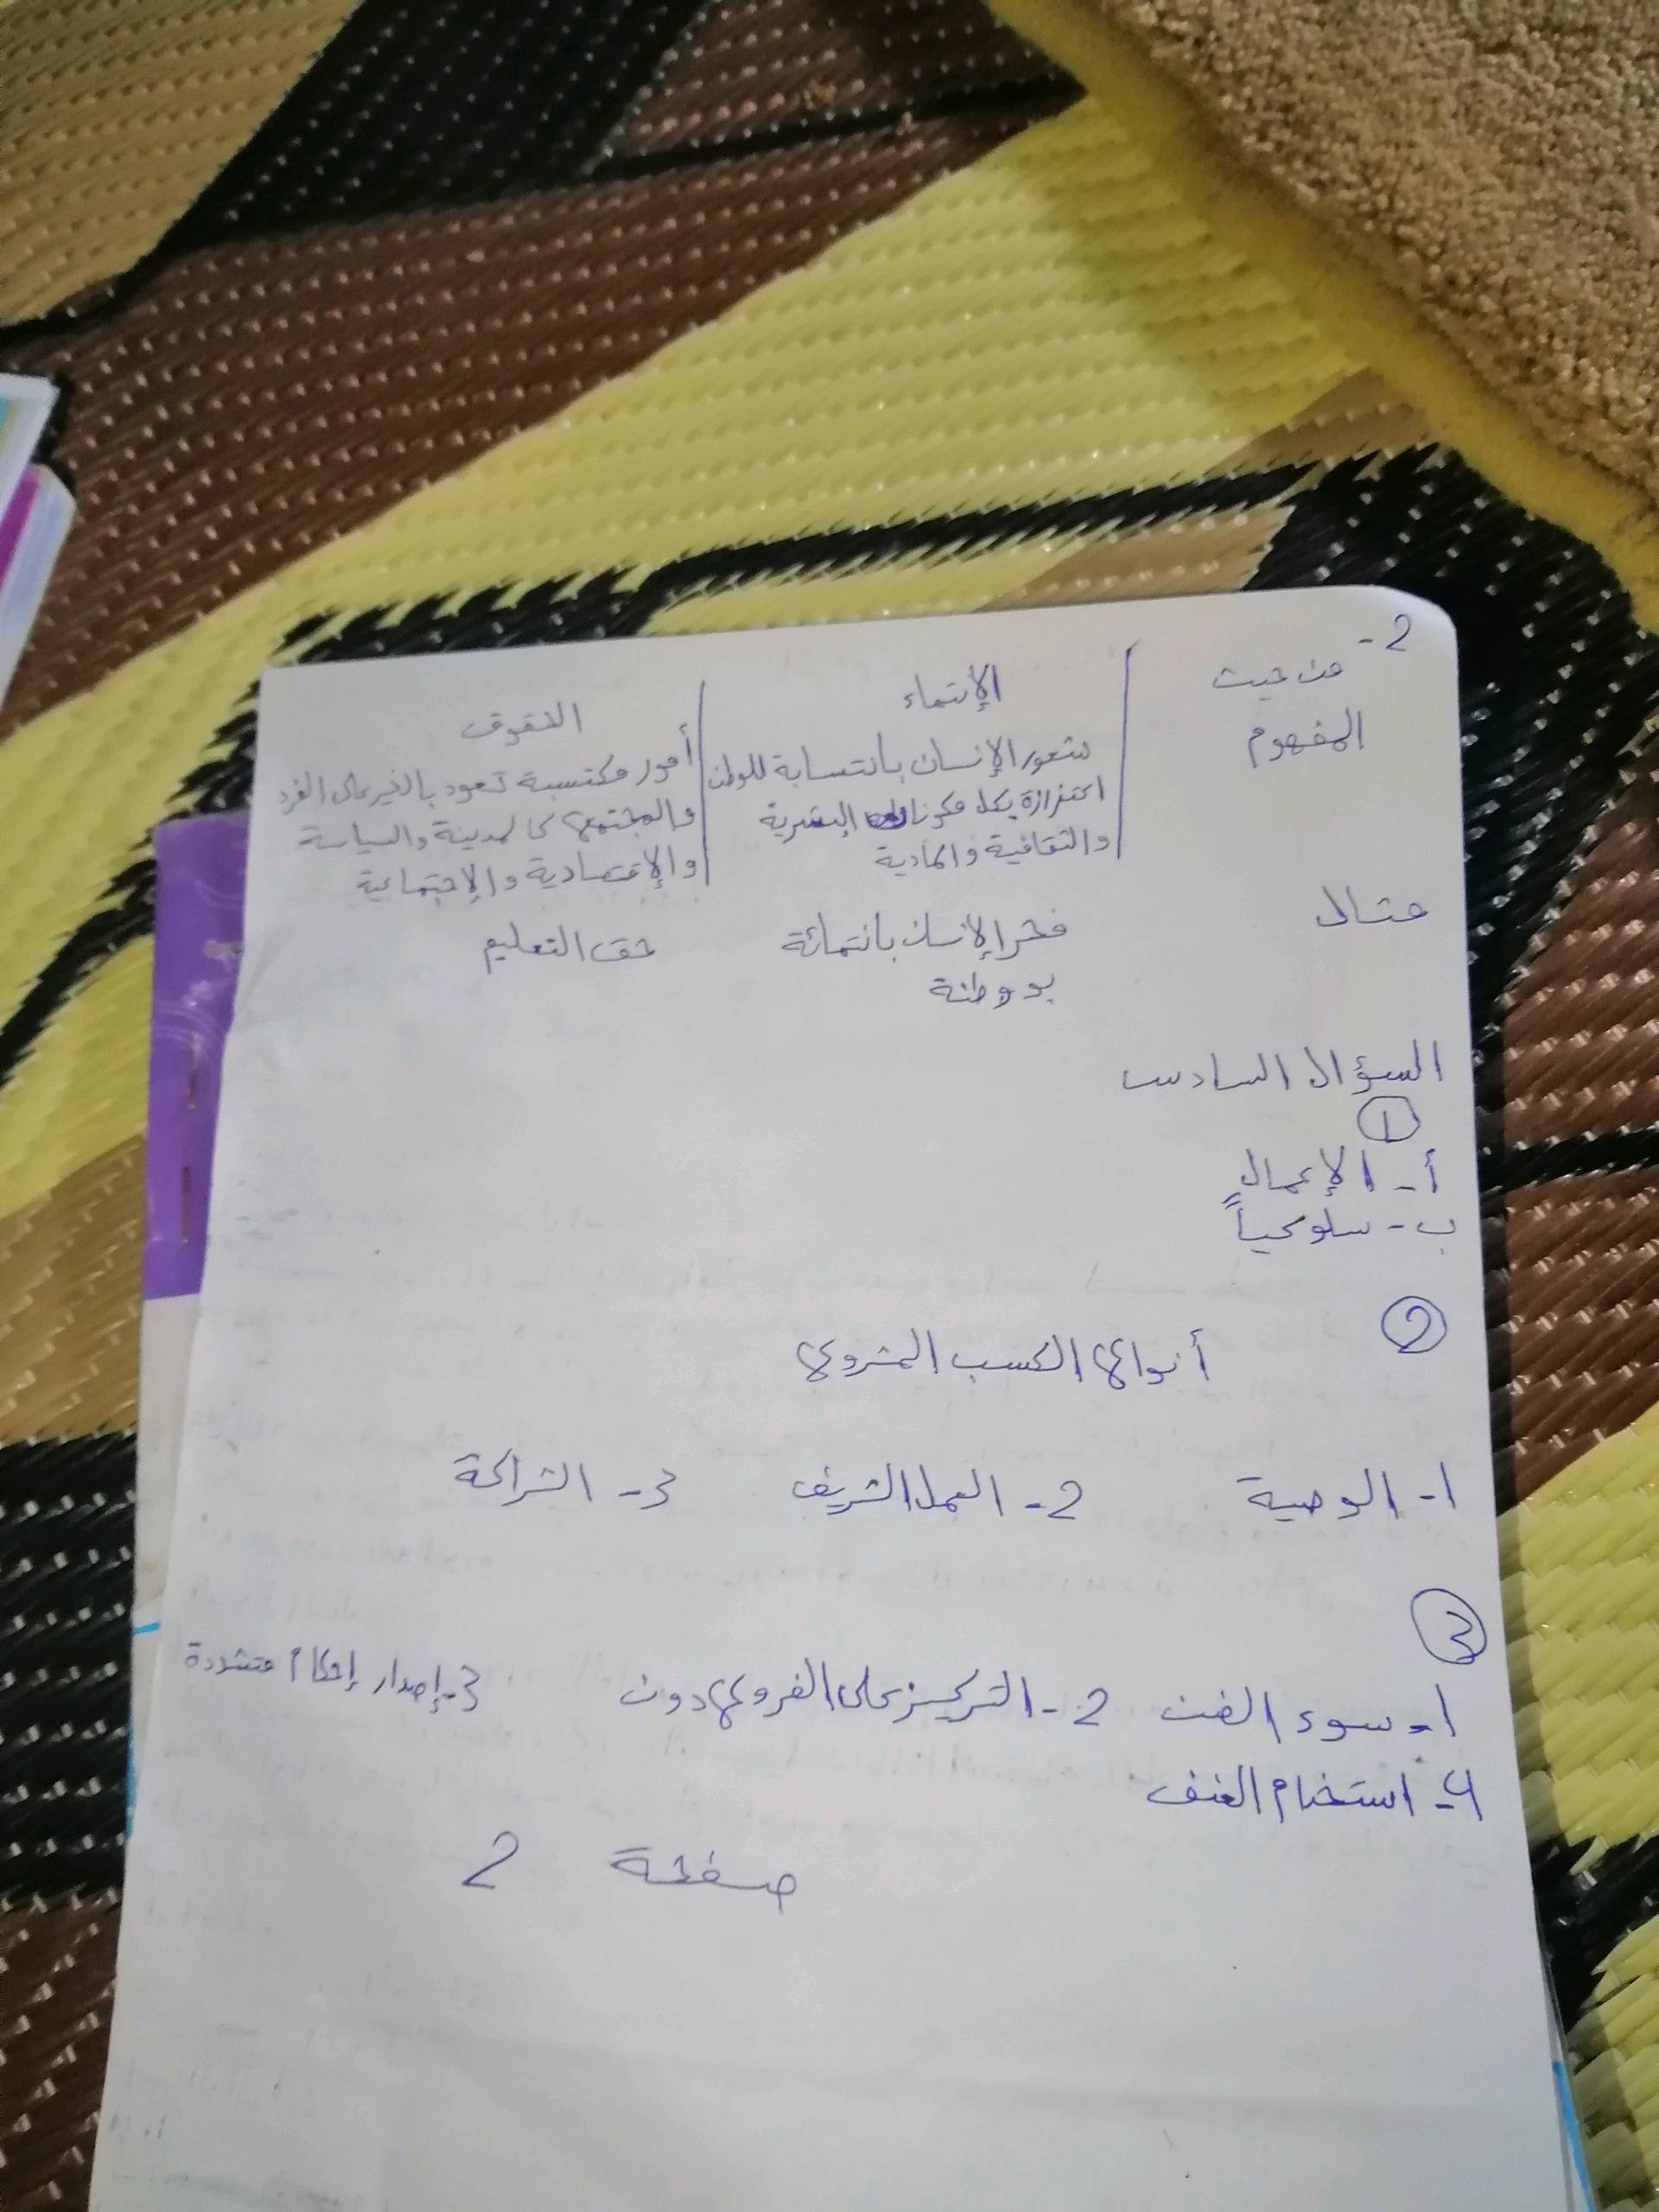 2-
من حيث
الإنتماء
الحقوق
المفهوم
شعور الإنسان بانتسابة للوطن
اعتزازة بكل مكوناته البشرية
والثقافية والمادية
أمور مكتسبة تعود بالخير على الفرد
والمجتمع كالمدينة والسياسة
والإقتصادية والإجتماعية
مثال
فخر الإنسان بانتمائة
بو وطنة
حق التعليم
السؤال السادس
1
أ- الإعمال
ب- سلوكياً
2
أنواع الكسب المشروع
1- الوصية 2- العمل الشريف 3- الشراكة
3
1- سوء الضن 2- التركيز على الفروع دون 3- إصدار إحكام متشددة
4- استخدام العنف
صفحة 2